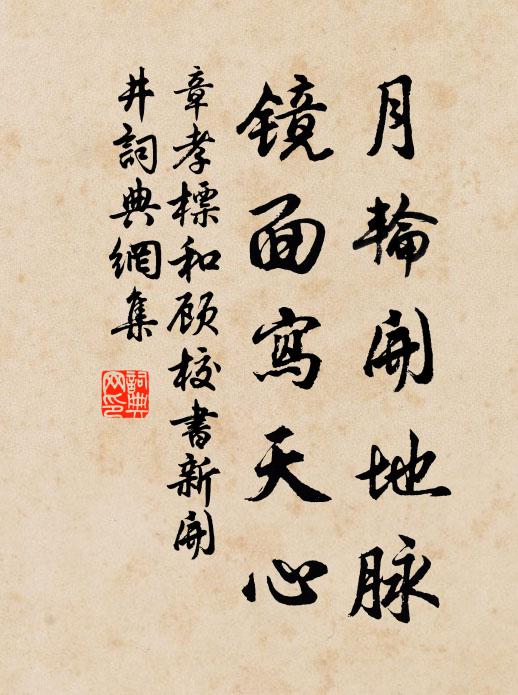 月輪開地脉
鏡面寫天心
章孝標和顾校書新開
井詞典網集
詞典
网印